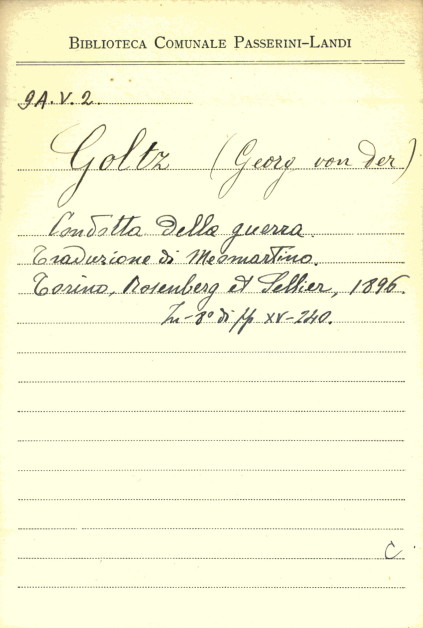 BIBLIOTECA COMUNALE PASSERINI-LANDI
9A.V.2.
Goltz (Georg von der)
Condotta della guerra.
Traduzione di Mesmartino.
Torino, Rosenberg et Sellier, 1896.
In-8º di pp XV-240.
C